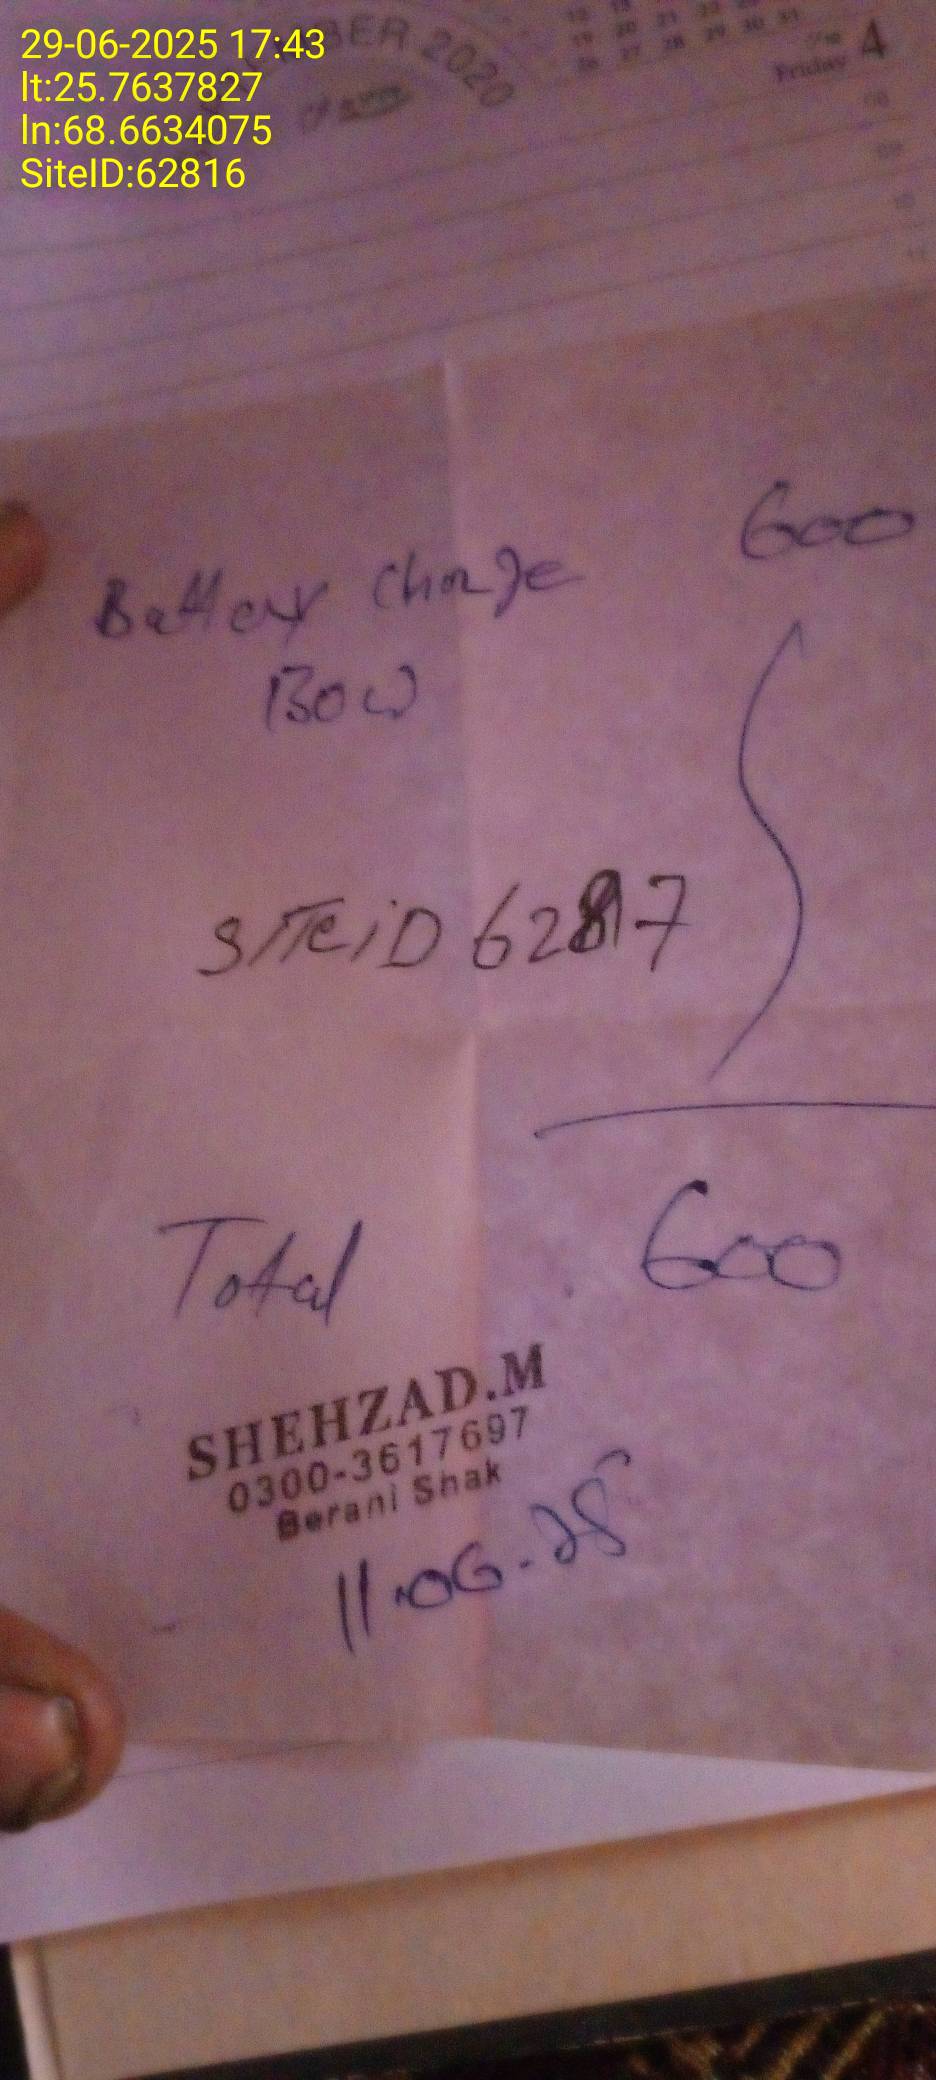 29-06-2025 17:43
lt:25.7637827
ln:68.6634075
SiteID:62816
BER 2020
Friday 4
600
Battery Charge
130W
SITE iD 62817
Total 600
SHEHZAD.M
0300-3617697
Berani Shak
11.06.25